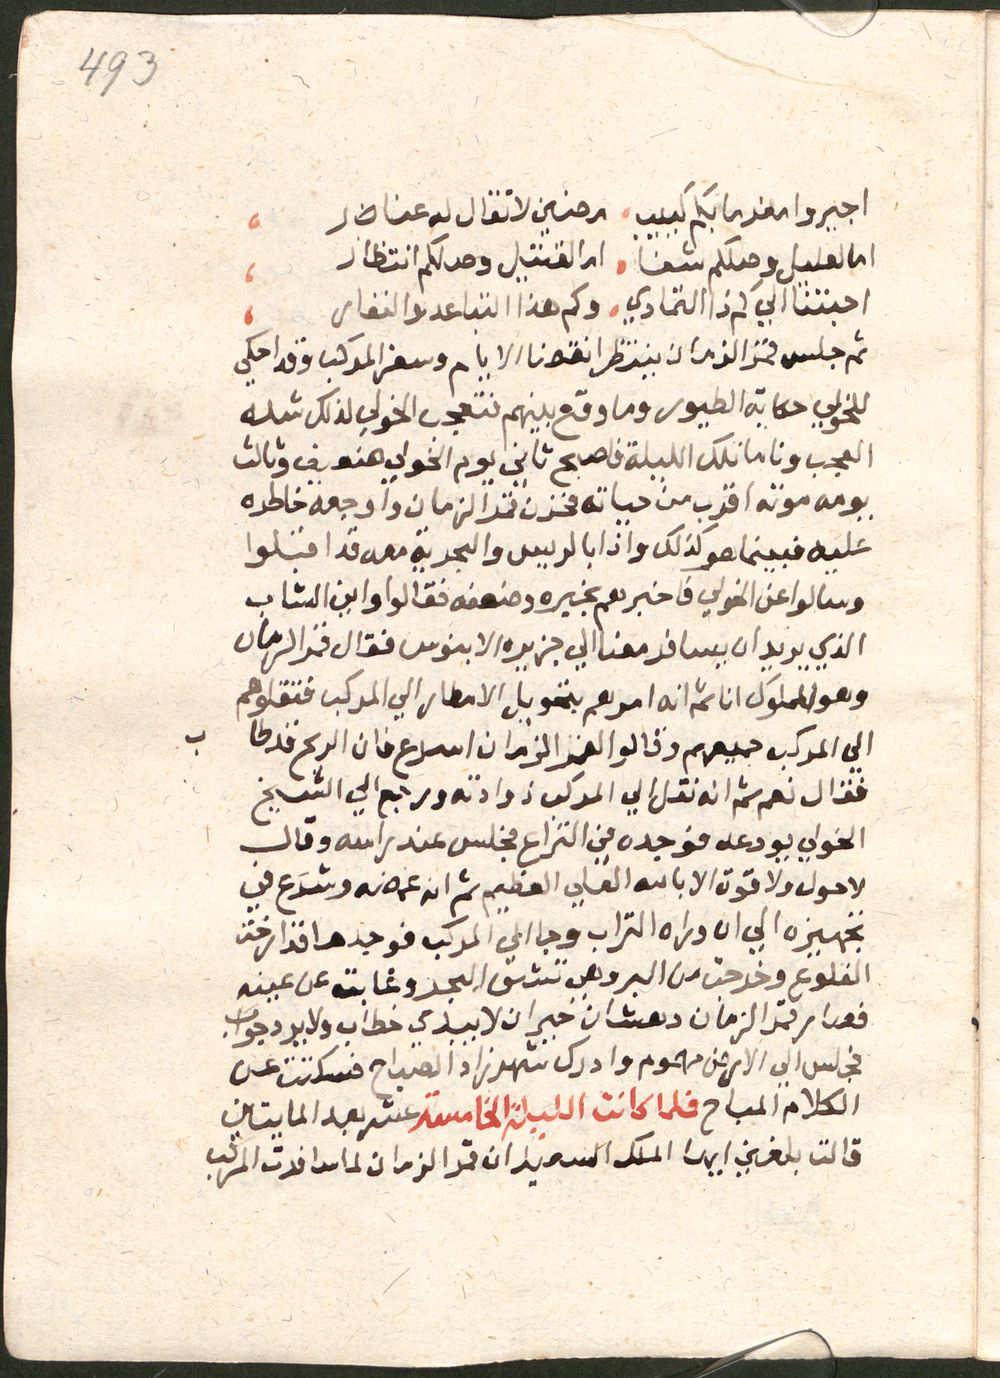 493
اجيروا مغرما بكم كييب مرضين لا تقال له عنا ضار
اما لعليل وصلكم شفا اما لقتيل وصلكم انتظار
احبتنا الي كم ذا التمادي وكم هذا التباعد والنفار
ثم جلس قمر الزمان ينتظر انقضا الايام وسفر المركب وقد احكي
للخولي حكاية الطيور وما وقع بينهم فتعجب الخولي لذلك شده
العجب وناما تلك الليلة فاصبح ثاني يوم الخولي ضعيف وثالث
يومه موته اقرب من حياته فحزن قمر الزمان واوجعه خاطره
عليه فبينما هو كذلك واذا بالرييس والبحرية معه قد اقبلوا
وسالوا عن الخولي فاخبرهم بخبره وضعفه فقالوا واين الشاب
الذي يريد ان يسافر معنا الي جزيره الابنوس فقال قمر الزمان
وهو المملوك انا ثم انه امرهم بتحويل الامطار الي المركب فنقلوهم
الي المركب جميعهم وقالوا لقمر الزمان اسرع فان الريح قد طاب
فقال نعم ثم انه نقل الي المركب زوادته ورجع الي الشيخ
الخولي يودعه فوجده في النزاع فجلس عند راسه وقال
لا حول ولا قوة الا بالله العلي العظيم ثم انه غمضه وشرع في
تجهيزه الي ان واره التراب وجا الي المركب فوجدها قد ارخت
القلوع وخرجت من البر وهي تشق البحر وغابت عن عينه
فصار قمر الزمان دهشان خيران لا يبدي خطاب ولا يرد جواب
فجلس الي الارض مهموم وادرك شهرزاد الصباح فسكتت عن
الكلام المباح فلما كانت الليلة الخامسة عشر بعد المايتين
قالت بلغني ايها الملك السعيد ان قمر الزمان لما سافرت المركب